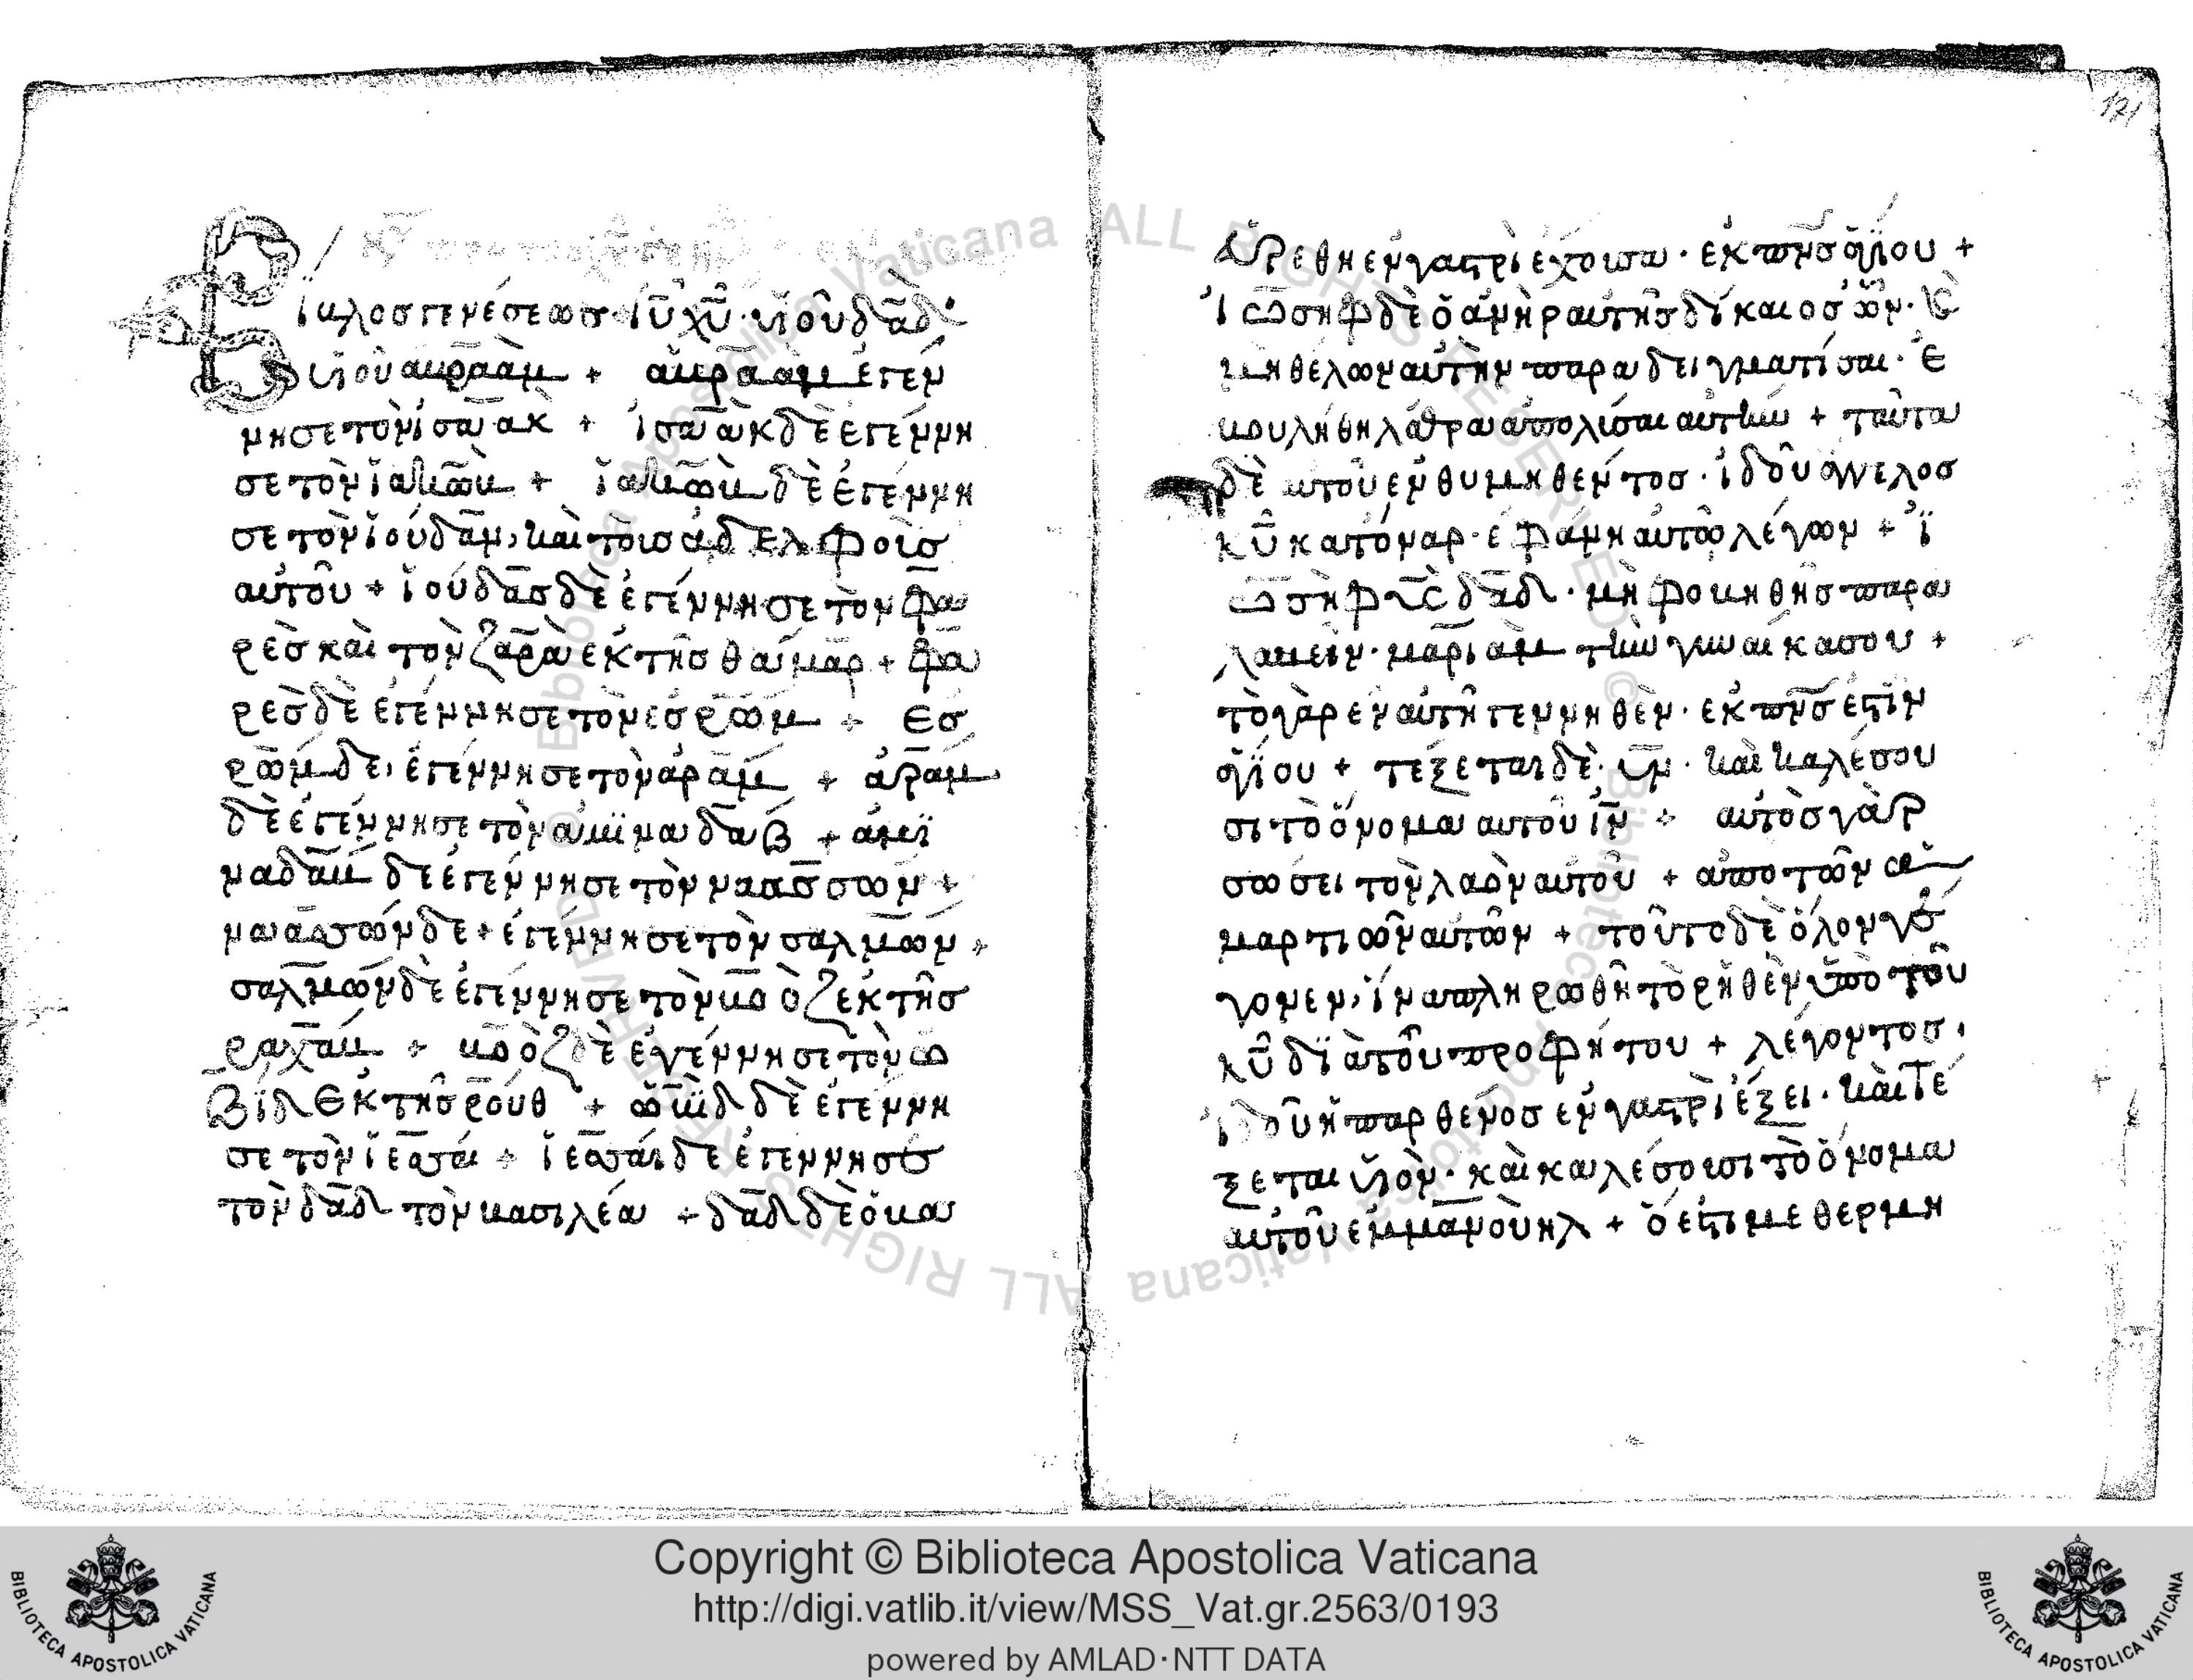 Βίβλος γενέσεως ἰῦ χῦ· υἱοῦ δᾱδ·
υἱοῦ αβρᾱὰμ + ἀβρᾱὰμ ἐγέν
νησε τὸν ἰσαὰκ + ἰσαὰκ δὲ ἐγέννη
σε τὸν ἰακὼβ + ἰακὼβ δὲ ἐγέννη
σε τὸν ἰούδαν, καὶ τοισ ἀδελφοὶσ
αὐτοῦ + ἰούδασ δὲ ἐγέννησε τὸν φα
ρὲσ καὶ τὸν ζαρὰ ἐκ τῆσ θαίμαρ + φα
ρὲσ δὲ ἐγέννησε τὸν ἐσρώμ + ἐσ
ρώμ δε, ἐγέννησε τὸν ἀράμ + ἀράμ
δὲ ἐγέννησε τὸν αμϊναδαβ + ἀμϊ
ναδαβ δὲ ἐγέννησε τὸν ναασσων +
ναασσών δε + ἐγέννησε τὸν σαλμων +
σαλμών δὲ ἐγέννησε τὸν βοὸζ ἐκ τῆσ
ραχάβ + βοὸζ δὲ ἐγέννησε τὸν ω
βϊδ ἐκ τῆσ ρούθ + ὠβϊδ δὲ ἐγέννη
σε τὸν ἰεσσαί + ἰεσσαί δε ἐγέννησε
τὸν δᾱδ τὸν βασιλέα + δᾱδ δὲ ὁ βα
εὑρεθη ἐν γαστρὶ ἐχοισα· ἐκ πν̄σ ἁγίου +
ἰωσηφ δὲ ὁ ἀνὴρ αὐτῆσ δίκαιοσ ὤν· κ
μη θέλων αὐτὴν παραδειγματίσαι· ἐ
βουλήθη λάθρα ἀπολισαι αὐτὴν + ταῦτα
δὲ αυτοῦ ἐνθυμηθέντοσ· ἰδοῦ ἄγγελοσ
κῦ κατόναρ· ἐφάνη αὐτῶ λέγων + ἰ
ωσὴφ υσ δᾱδ· μὴ φοβηθῆσ παρα
λαβεῖν· μαριὰμ τὴν γυναίκα σου +
τὸ γὰρ ἐν αὐτῆ γεννηθὲν· ἐκ πν̄σ ἐστὶν
ἁγίου + τέξεται δὲ· υν· καὶ καλέσου
σι τὸ ὄνομα αυτοῦ ἰν + αὐτὸσ γὰρ
σώσει τὸν λαὸν αὐτοῦ + ἀπο τῶν ἁ
μαρτιῶν αὐτῶν + τοῦτο δὲ ὅλον γέ
γονεν, ἵνα πληρωθῆ τὸ ρηθὲν ὑπὸ τοῦ
κῦ δϊὰ τοῦ προφήτου + λέγοντοσ,
ἰδοῦ ἡ παρθένοσ ἐν γαστρὶ ἕξει· καὶ τέ
ξεται υἱὸν· καὶ καλέσοισι τὸ ὄνομα
αυτοῦ ἐμμανουὴλ + ὅ ἐστι μεθερμη
Copyright © Biblioteca Apostolica Vaticana
http://digi.vatlib.it/view/MSS_Vat.gr.2563/0193
powered by AMLAD·NTT DATA
BIBLIOTECA APOSTOLICA VATICANA
BIBLIOTECA APOSTOLICA VATICANA